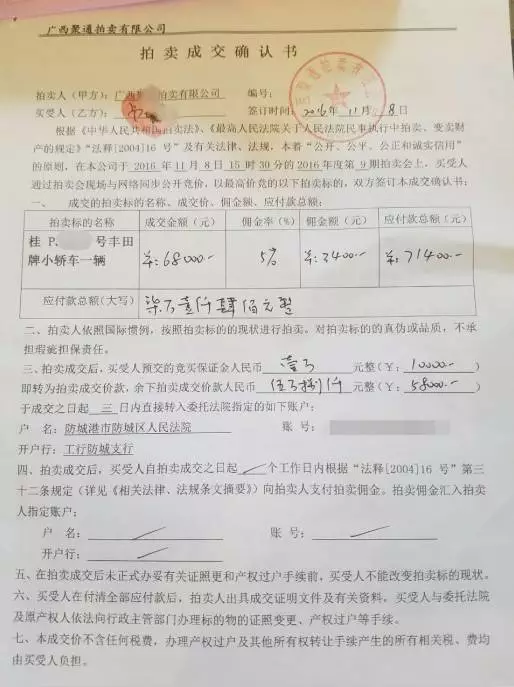 广西聚通拍卖有限公司
拍卖成交确认书
拍卖人（甲方）：广西 拍卖有限公司 编号：
买受人（乙方）： 签订时间：2016年11月8日
根据《中华人民共和国拍卖法》、《最高人民法院关于人民法院民事执行中拍卖、变卖财
产的规定》“法释[2004]16 号”及有关法律、法规，本着“公开、公平、公正和诚实信用”
的原则，在本公司于 2016 年 11 月 8 日 15 时 30 分的 2016 年度第 9 期拍卖会上，买受人
通过拍卖会现场与网络同步公开竞价，以最高价竞的以下拍卖标的，双方签订本成交确认书：
一、 成交的拍卖标的名称、成交价、佣金额、应付款总额：
拍卖标的名称 成交金额（元） 佣金率（%） 佣金额（元） 应付款总额（元）
桂 P. 号丰田
牌小轿车一辆 ¥:68000.- 5% ¥:3400.- ¥:71400.-
应付款总额（大写） 柒万壹仟肆佰元整
二、拍卖人依照国际惯例，按照拍卖标的的现状进行拍卖。对拍卖标的的真伪或品质，不承
担瑕疵担保责任。
三、拍卖成交后，买受人预交的竞买保证金人民币 壹万 元整（¥： 10000.- ）
即转为拍卖成交价款，余下拍卖成交价款人民币 伍万捌仟 元整（¥： 58000.- ）
于成交之日起 三 日内直接转入委托法院指定的如下账户：
户 名：防城港市防城区人民法院 账 号：
开户行：工行防城支行
四、拍卖成交后，买受人自拍卖成交之日起 个工作日内根据“法释[2004]16 号”第三
十二条规定（详见《相关法律、法规条文摘要》）向拍卖人支付拍卖佣金。拍卖佣金汇入拍卖
人指定账户：
户 名： 账 号：
开户行：
五、在拍卖成交后未正式办妥有关证照更和产权过户手续前，买受人不能改变拍卖标的现状。
六、买受人在付清全部应付款后，拍卖人出具成交证明文件及有关资料，买受人与委托法院
及原产权人依法向行政主管部门办理标的物的证照变更、产权过户等手续。
七、本成交价不含任何税费，办理产权过户及其他所有权转让手续产生的所有相关税、费均
由买受人负担。